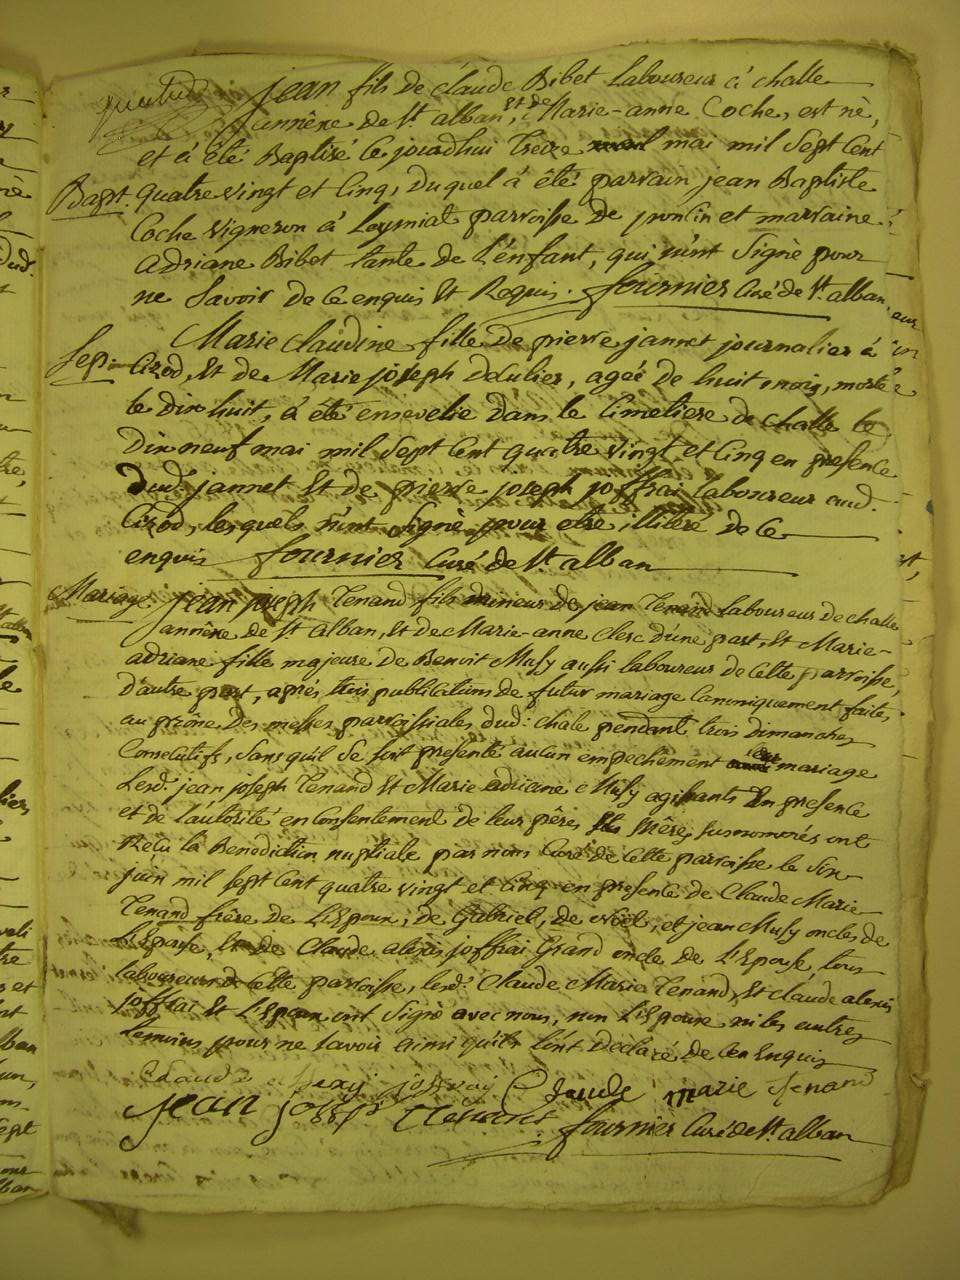 jean fils de claude Bibet Laboureur à challe
annêxe de St alban, et de Marie-anne Coche, est né,
et à été Baptisé Ce jourdhui treize mai mil Sept Cent
Bapt. quatre vingt et Cinq, duquel à été parrain jean Baptiste
Coche Vigneron à Leymiat parroisse de poncin et marraine
adriane Bibet tante de L'énfant, qui n'ont Signé pour
ne Savoir de Ce enquis Et Requis. fournier Curé de St. alban
Marie Claudine fille de pierre jannet journalier à
Sep. Cizod, Et de Marie joseph Delulier, agée de huit mois, morte
le dix huit, à été ensevelie dans le Cimetiere de challe le
Dix neuf mai mil Sept Cent quatre vingt et Cinq en presence
dud. jannet Et de pierre joseph joffrai laboureur aud.
Cizod, lesquels n'ont Signé pour etre illitéré de Ce
enquis fournier Curé de St. alban
Mariage. jean joseph Tenand fils mineur de jean Tenand laboureur de challe
annêxe de St alban, Et de Marie-anne Clerc d'une part, Et Marie-
adriane fille majeure de Benoit Musy aussi laboureur de Cette parroisse,
D'autre part, aprés trois publications de futur mariage Canoniquement faites
au prône des messes parroissiales dud: chale pendant trois Dimanches
Consecutifs, Sans qu'il Se soit presenté aucun empechement mariage
Lesd. jean joseph Tenand Et Marie adriane Musy agissants En presence
et de l'autorité en Consentement de leur pêres Et Mêres Susnommés ont
Reçu la Benediction nuptiale par nous Curé de Cette parroisse le Six
juin mil Sept Cent quatre vingt et Cinq en presence de Claude Marie
Tenand frère de L'Epoux, de Gabriel, de Noël, et jean Musy oncles de
L'Epouse, Et de Claude alexis joffrai Grand oncle de L'Epouse, tous
laboureurs de Cette parroisse, lesd. Claude Marie Tenand, Et claude alexis
joffrai Et L'Epoux ont Signé avec nous, non L'Epouse ni les autres
temoins pour ne Savoir ainsi qu'ils L'ont declaré de Ce Enquis
Claude joffrai Claude marie tenand
jean joseph Tenand
fournier Curé de St. alban